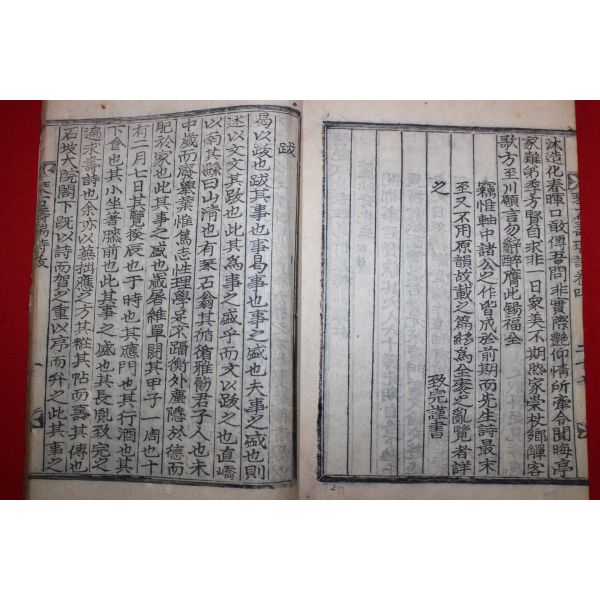 沐造化春暉口敢傳吾問非實際艶仰情所牽令聞晦亭
家難弟季方賢自求非一日衆美不期愆家崇杖鄉觶客
歌方至川願言勿辭醉膺此錫福全
竊惟軸中諸公之作皆成於前期而先生詩最末
至又不用原韻故載之篇終為全帙之亂覽者詳
之
致完謹書
跋
曷以跋也跋其事也事曷事也事之盛也夫事之盛也則
述以文文其跋也此其為事之盛乎而文以跋之也直嶠
以南其縣曰山清也有琴石翁其循循雅勑君子人也未
中歲而廢擧業惟篤志性理學足不躡衡外塵隱於德而
肥於家也此其事之盛也歲屠維單閼其甲子一周也十
有二月七日其覽揆辰也于時也其應門也其行酒也其
下食也其小坐著膝前也此其事之盛也其長胤致完之
遍求壽詩也余亦以蕪拙應之方其粧其帖而壽其傳也
石坡大院閤下旣以詩而賀之重以亭而弁之此其事之